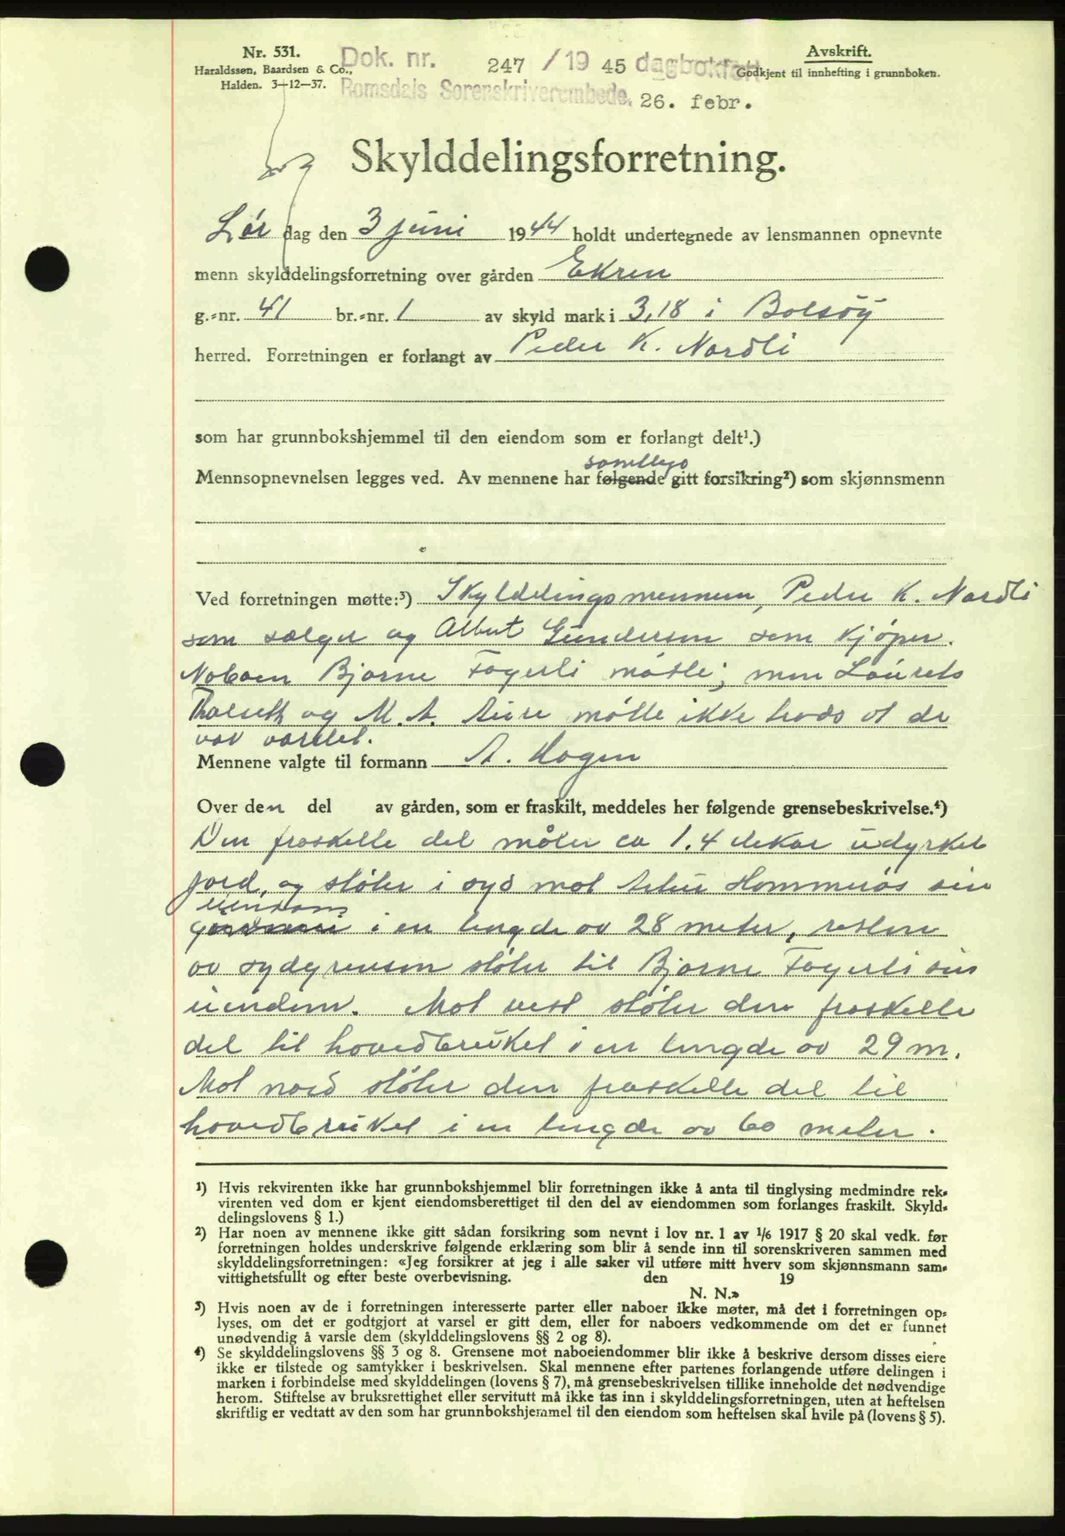 Nr. 531.
Haraldssen, Baardsen & Co.,
Halden. 3—12—37.
Dok. nr. 247 / 19 45 dagbokført
Romsdals Sorenskriverembede. 26. febr.
Avskrift.
Godkjent til innhefting i grunnboken.
Skylddelingsforretning.
Lør dag den 3 juni 1944 holdt undertegnede av lensmannen opnevnte
menn skylddelingsforretning over gården Ekren
g.-nr. 41 br.-nr. 1 av skyld mark i 3,18 i Bolsøy
herred. Forretningen er forlangt av Peder K. Nordli
som har grunnbokshjemmel til den eiendom som er forlangt delt¹.)
samtlige
Mennsopnevnelsen legges ved. Av mennene har følgende gitt forsikring²) som skjønnsmenn
Ved forretningen møtte:³) Skylddelingsmennene, Peder K. Nordli
som sælger og Albert Gundersen som kjøper.
Naboen Bjarne Fagerli møtte; men Laurets
Thalseth og M. A. Aure møtte ikke trods at de
var varslet.
Mennene valgte til formann A. Hagen
Over den del av gården, som er fraskilt, meddeles her følgende grensebeskrivelse.⁴)
Den fraskilte del måler ca 1.4 dekar udyrket
jord, og støter i syd mot Hammerås sin
eiendom
i en lengde av 28 meter, resten
av sydgrensen støter til Bjarne Fagerli sin
eiendom. Mot vest støter den fraskilte
del til hovedbruket i en lengde av 29 m.
Mot nord støter den fraskilte del til
hovedbruket i en lengde av 60 meter.
¹) Hvis rekvirenten ikke har grunnbokshjemmel blir forretningen ikke å anta til tinglysing medmindre rek-
virenten ved dom er kjent eiendomsberettiget til den del av eiendommen som forlanges fraskilt. Skyld-
delingslovens § 1.)
²) Har noen av mennene ikke gitt sådan forsikring som nevnt i lov nr. 1 av 1/6 1917 § 20 skal vedk. før
forretningen holdes underskrive følgende erklæring som blir å sende inn til sorenskriveren sammen med
skylddelingsforretningen: «Jeg forsikrer at jeg i alle saker vil utføre mitt hverv som skjønnsmann sam-
vittighetsfullt og efter beste overbevisning. den 19
N. N.»
³) Hvis noen av de i forretningen interesserte parter eller naboer ikke møter, må det i forretningen op-
lyses, om det er godtgjort at varsel er gitt dem, eller for naboers vedkommende om det er funnet
unødvendig å varsle dem (skylddelingslovens §§ 2 og 8).
⁴) Se skylddelingslovens §§ 3 og 8. Grensene mot naboeiendommer blir ikke å beskrive dersom disses eiere
ikke er tilstede og samtykker i beskrivelsen. Skal mennene efter partenes forlangende utføre delingen i
marken i forbindelse med skylddelingen (lovens § 7), må grensebeskrivelsen tillike inneholde det nødvendige
herom. Stiftelse av bruksrettighet eller servitutt må ikke tas inn i skylddelingsforretningen, uten at heftelsen
skriftlig er vedtatt av den som har grunnbokshjemmel til den eiendom som heftelsen skal hvile på (lovens § 5).